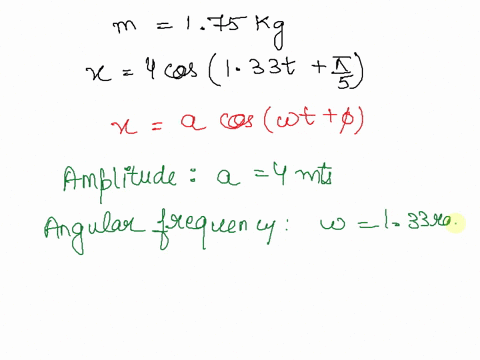 m = 1.75 Kg
x = 4 cos (1.33t + π/5)
x = a cos (ωt + φ)
Amplitude : a = 4 mts
Angular frequency : ω = 1.33 ra